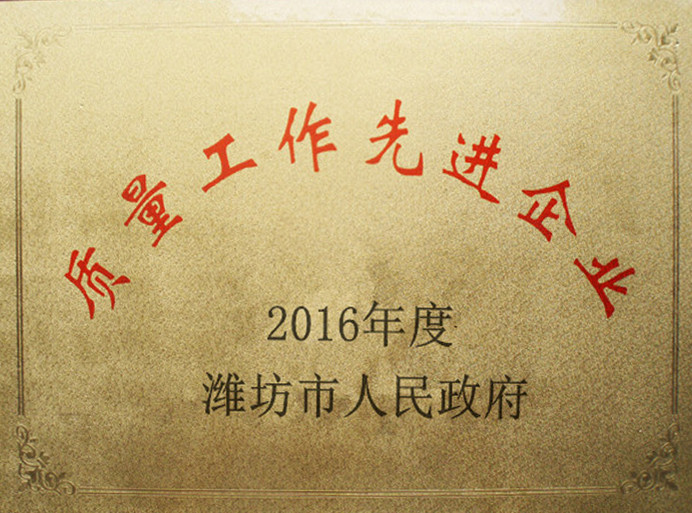 质量工作先进企业
2016年度
潍坊市人民政府